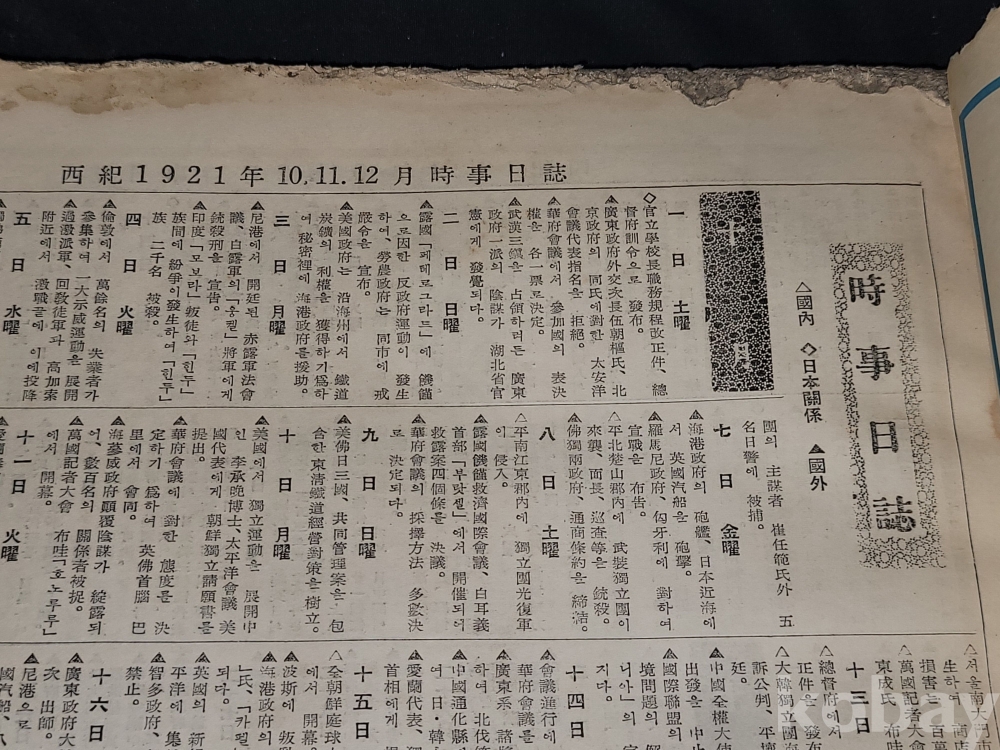 西紀1921年10,11.12月時事日誌
時事日誌
△國內 ◇日本關係 ▲國外
十月
一日 土曜
◇官立學校長職務規程改正件、總
督府訓令으로 發布。
▲廣東政府外交次長伍朝樞氏、北
京政府의 同氏에對한 太安洋
會議代表指名을 拒絕。
▲華府會議에서 參加國의 表決
權을 各一票로決定。
▲武漢三鎭을 占領하려든 廣東
政府一派의 陰謀가 湖北省官
憲에게 發覺되다。
二日 日曜
▲露國「페테로그라드」에 饑饉
으로因한 反政府運動이 發生
하여、勞農政府는 同市에 戒
嚴令을 宣布。
▲美國政府는 沿海州에서 鐵道
炭鑛의 利權을 獲得하기爲하
여 秘密裡에 海港政府를援助。
三日 月曜
▲尼港에서 開廷된 赤露軍法會
議、白露軍의「웅퀸」將軍에게
銃殺刑을 宣告。
▲印度「모브라」叛徒와「힌두」
族間에 紛爭이發生하여「힌두」
族 二千名 被殺。
四日 火曜
▲倫敦에서 萬餘名의 失業者가
參集하여 一大示威運動을 展開
▲過激派軍、回敎徒軍과 高加索
附近에서 激戰끝에 이에投降
五日 水曜
團의 主謀者 崔任範氏外 五
名日警에 被捕。
七日 金曜
▲海港政府의 砲艦、日本近海에
서 英國汽船을 砲擊。
▲羅馬尼政府、匈牙利에 對하여
宣戰을 布告。
△平北楚山郡內에 武裝獨立團이
來襲、面長、巡査等을 銃殺。
▲佛獨兩政府、通商條約을 締結。
八日 土曜
△平南江東郡內에 獨立團光復軍
이 侵入。
▲露國饑饉救濟國際會議、白耳義
首都「부랏셀」에서 開催되여
救露案四個條를 決議。
▲華府會議의 採擇方法 多數決
로 決定되다。
九日 日曜
▲美佛日三國、共同管理案을 包
含한東淸鐵道經營對策을樹立。
十日 月曜
▲美國에서 獨立運動을 展開中
인 李承晩博士、太平洋會議 美
國代表에게 朝鮮獨立請願書를
提出。
▲華府會議에 對한 態度를 決
定하기 爲하여 英佛首腦 巴
里에서 會同。
▲海蔘威政府顚覆陰謀가 綻露되
어、數百名의 關係者被捉。
▲萬國記者大會 布哇「호노루루」
에서 開幕。
十一日 火曜
△서울南大門
생하여 商
損害는 百萬
▲萬國記者大會
東成氏 布哇
十三日
△總督府에서
正件을 發布
△大韓獨立團
訴公判、平壤
廷。
▲中國全權大使
出發을 中
▲國際聯盟의
境問題의 
니아의 宣
지다。
十四日
▲會議進行에
華府會議를
▲廣東系、諸將
하여 北伐
▲中國通化縣
여 日・韓
▲愛蘭代表、
首相에게
十五日
△全朝鮮庭球
에서 開幕
▲波斯에 叛
▲海港政府의
ㄴ氏、「카펠
되다。
▲英國의 新
平洋에 集
▲智多政府、
禁止。
十六日
▲廣東政府大
次 出師。
▲尼港으로
國汽船、八